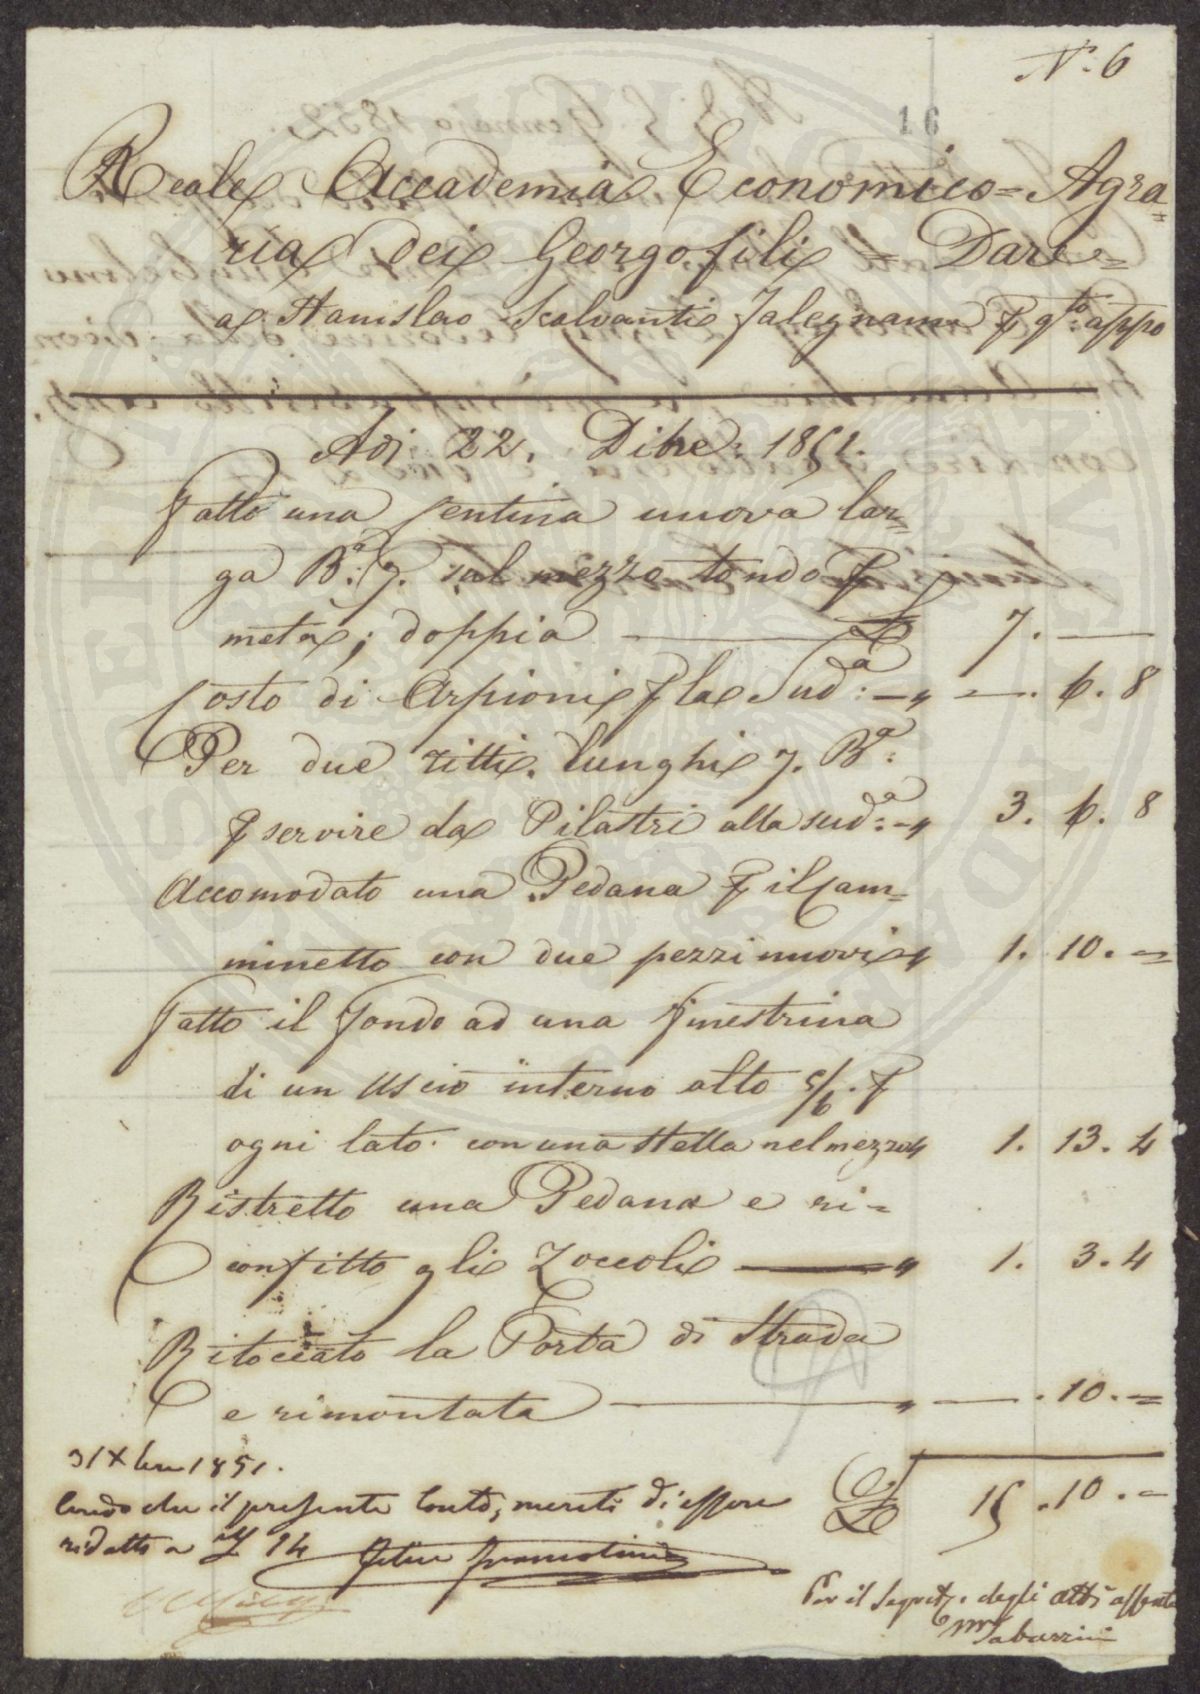 N.° 6
16
Reale Accademia Economico= Agra=
ria dei Georgofili = Dare=
a Stanislao Scalvanti Falegname P q.to appo
Adi 22. Dibre: 1851.
Fatto una Sentina nuova lar=
ga B.a: 7. sul mezzo tondo P
metà; doppia £ 7. —
Costo di Arpioni P la Sud.a: — " —. 6. 8
Per due ritti. lunghi 7. B.a:
P servire da Pilastri alla sud.a: — " 3. 6. 8
Accomodato una Pedana P il Cam=
minetto con due pezzi nuovi " 1. 10. =
Fatto il Fondo ad una Finestrina
di un Uscio interno alto 5/6. P
ogni lato. con una Stella nel mezzo " 1. 13. 4
Ristretto una Pedana e ri=
confitto gli Zoccoli — " 1. 3. 4
Ritoccato la Porta di Strada
e rimontata — " —. 10. =
£ 15. 10. =
31 Xbre 1851.
Credo che il presente Conto, meriti di essere
ridotto a £ 14 Felice Francolini
Per il Segret.o degli Atti assente
M Tabarrini